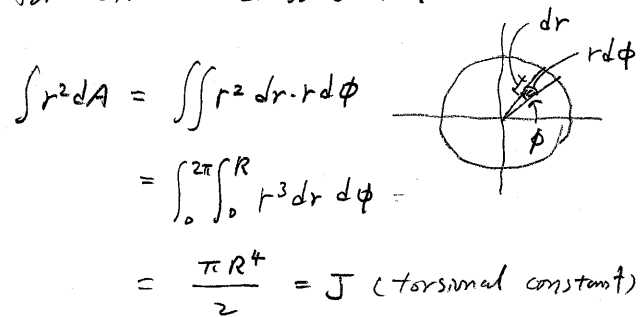 dr
rdϕ
∫r²dA = ∬ r² dr·rdϕ
ϕ
= ∫₀^{2π} ∫₀^R r³ dr dϕ =
= πR⁴/2 = J (torsional constant)